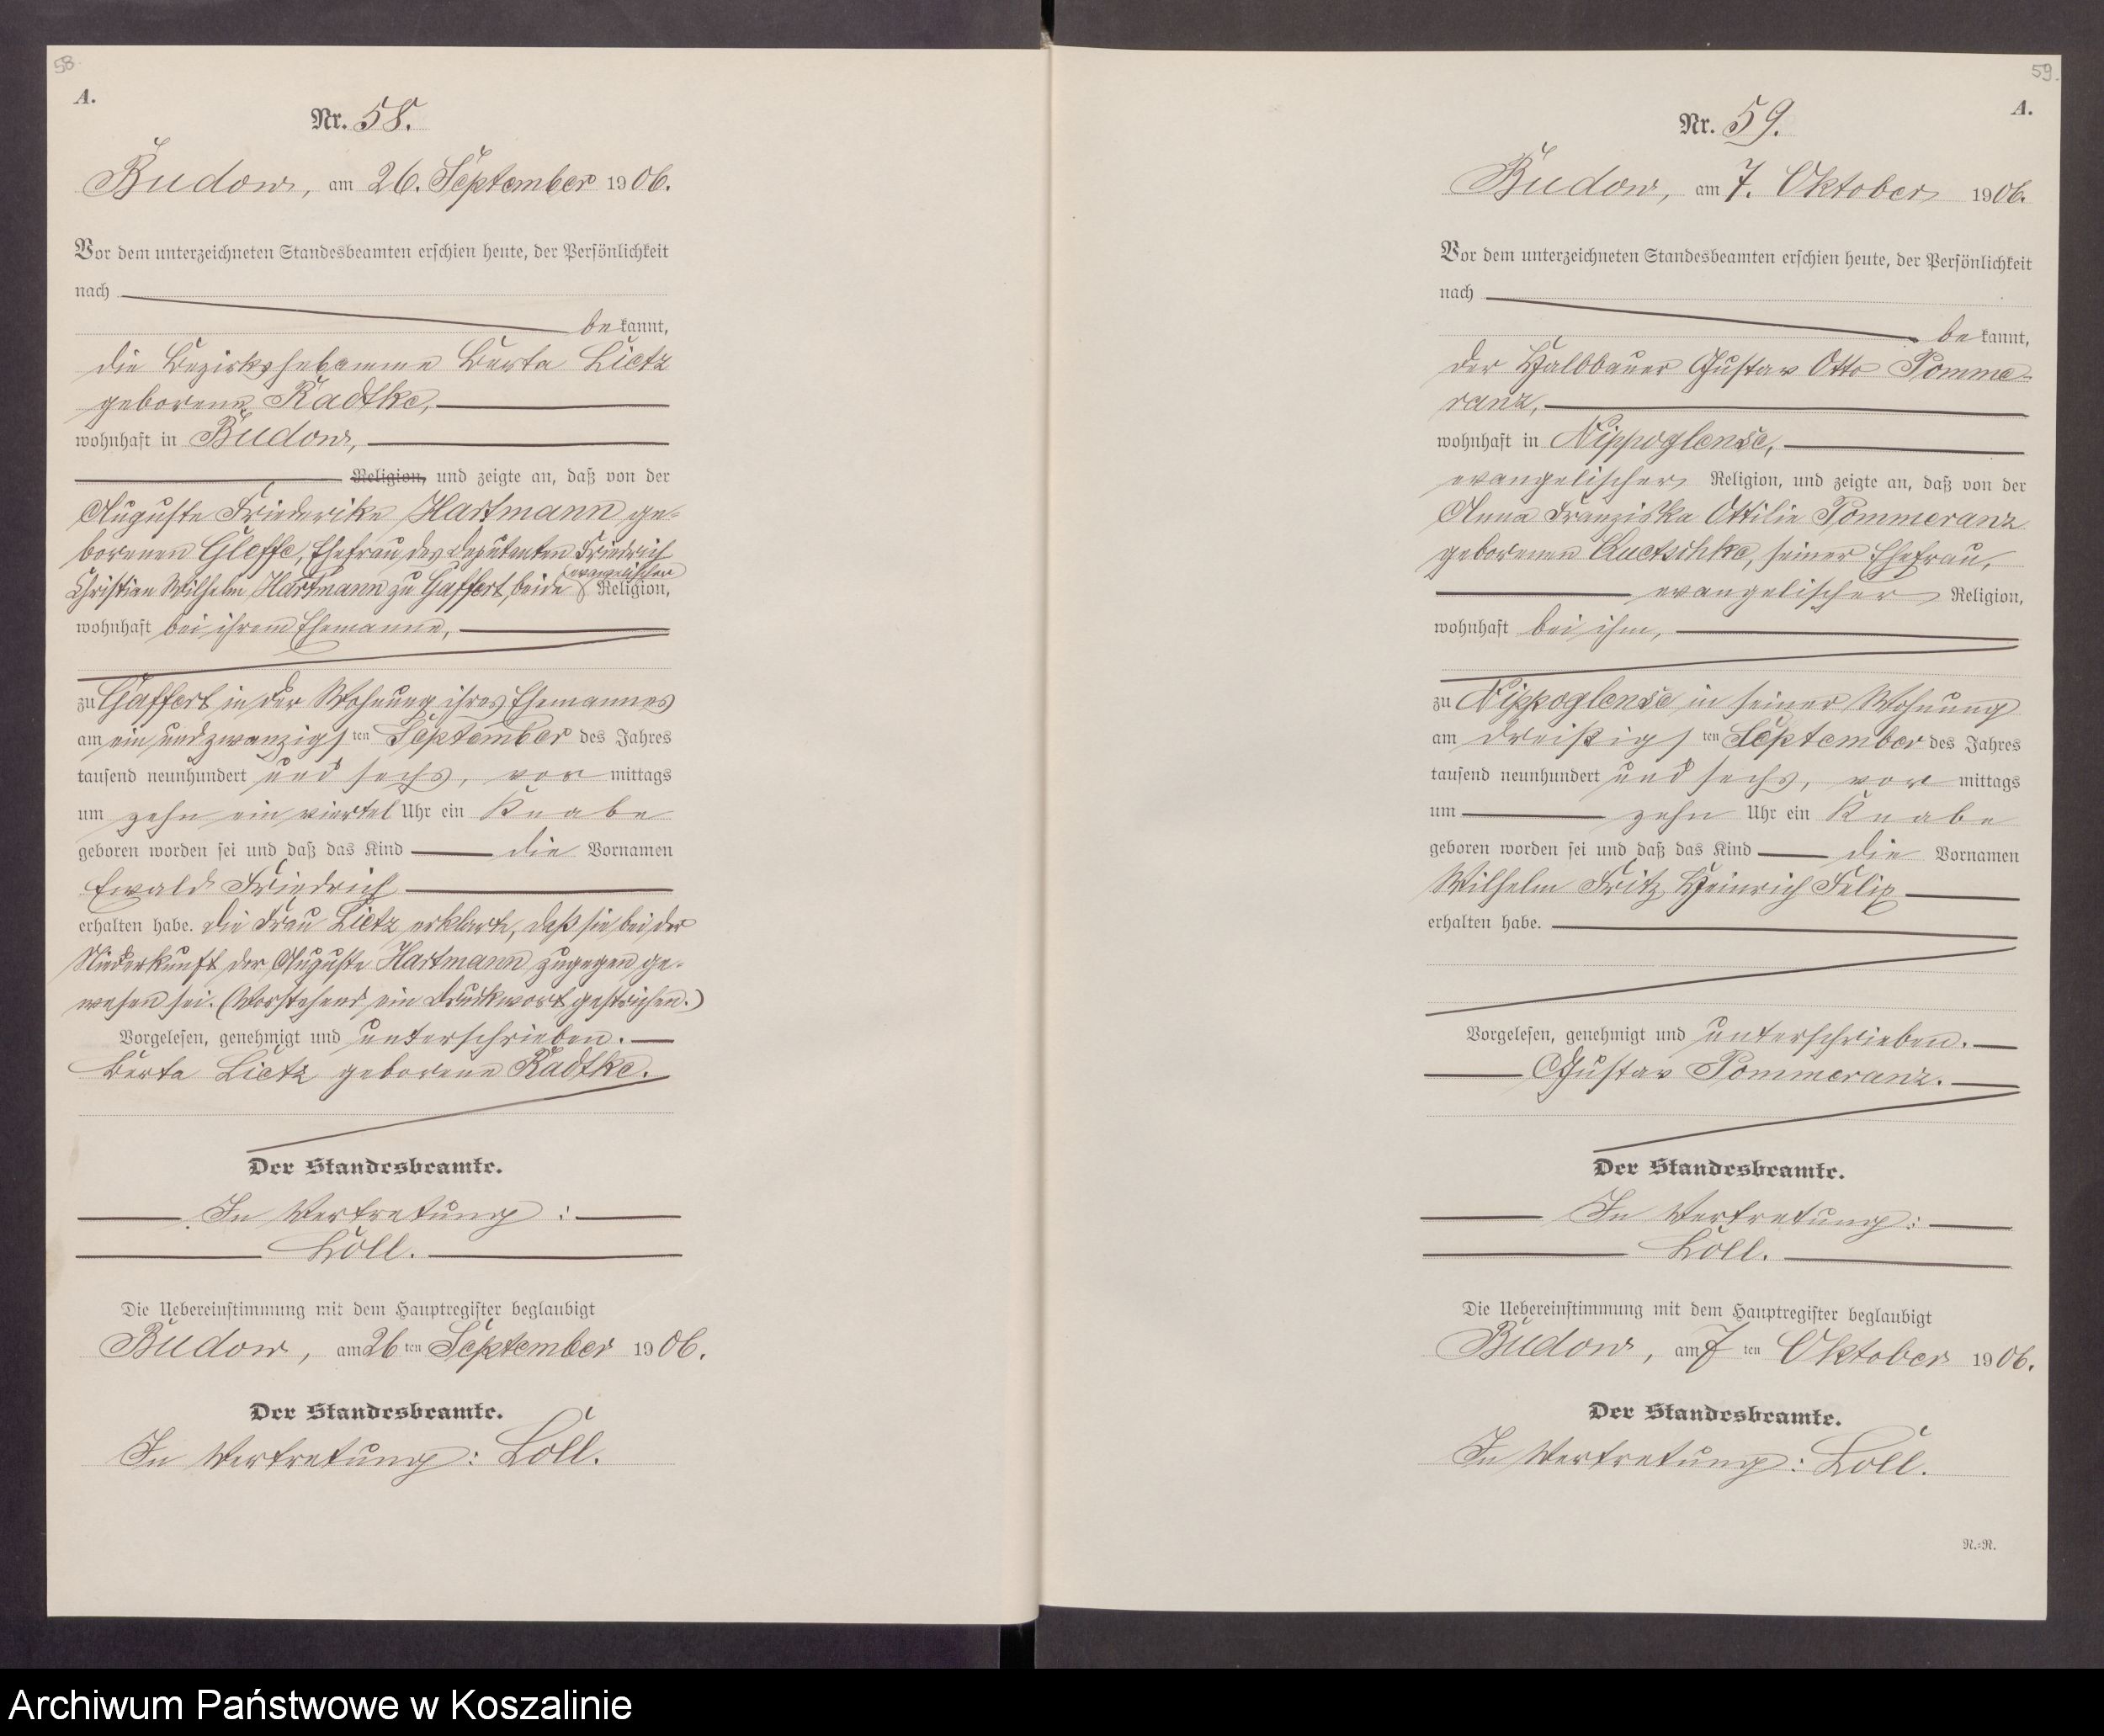 58
A.
Nr. 58.
Budow, am 26. September 1906.
Vor dem unterzeichneten Standesbeamten erschien heute, der Persönlichkeit
nach
bekannt,
die Bezirkshebamme Berta Lietz
geborene Radtke,
wohnhaft in Budow,
Religion, und zeigte an, daß von der
Auguste Friederike Hartmann ge-
borenen Gleffe, Ehefrau des Deputanten Friedrich
evangelischer
Christian Wilhelm Hartmann zu Gaffert, beide Religion,
wohnhaft bei ihrem Ehemanne,
zu Gaffert in der Wohnung ihres Ehemannes
am ein und zwanzigsten September des Jahres
tausend neunhundert und sechs, vormittags
um zehn ein viertel Uhr ein Knabe
geboren worden sei und daß das Kind die Vornamen
Ewald Friedrich
erhalten habe. Die Frau Lietz erklärte, daß sie bei der
Niederkunft der Auguste Hartmann zugegen ge-
wesen sei. (Vorstehend ein Druckwort gestrichen.)
Vorgelesen, genehmigt und unterschrieben.
Berta Lietz geborene Radtke.
Der Standesbeamte.
In Vertretung:
Löll.
Die Uebereinstimmung mit dem Hauptregister beglaubigt
Budow, am 26ten September 1906.
Der Standesbeamte.
In Vertretung: Löll.
59.
A.
Nr. 59.
Budow, am 7. Oktober 1906.
Vor dem unterzeichneten Standesbeamten erschien heute, der Persönlichkeit
nach
bekannt,
der Halbbauer Gustav Otto Pomme-
ranz,
wohnhaft in Nippoglense,
evangelischer Religion, und zeigte an, daß von der
Anna Franziska Ottilie Pommeranz
geborenen Quetschke, seiner Ehefrau,
evangelischer Religion,
wohnhaft bei ihm,
zu Nippoglense in seiner Wohnung
am dreißigsten September des Jahres
tausend neunhundert und sechs, vormittags
um zehn Uhr ein Knabe
geboren worden sei und daß das Kind die Vornamen
Wilhelm Fritz Heinrich Felix
erhalten habe.
Vorgelesen, genehmigt und unterschrieben.
Gustav Pommeranz.
Der Standesbeamte.
In Vertretung:
Löll.
Die Uebereinstimmung mit dem Hauptregister beglaubigt
Budow, am 7ten Oktober 1906.
Der Standesbeamte.
In Vertretung: Löll.
N.=N.
Archiwum Państwowe w Koszalinie